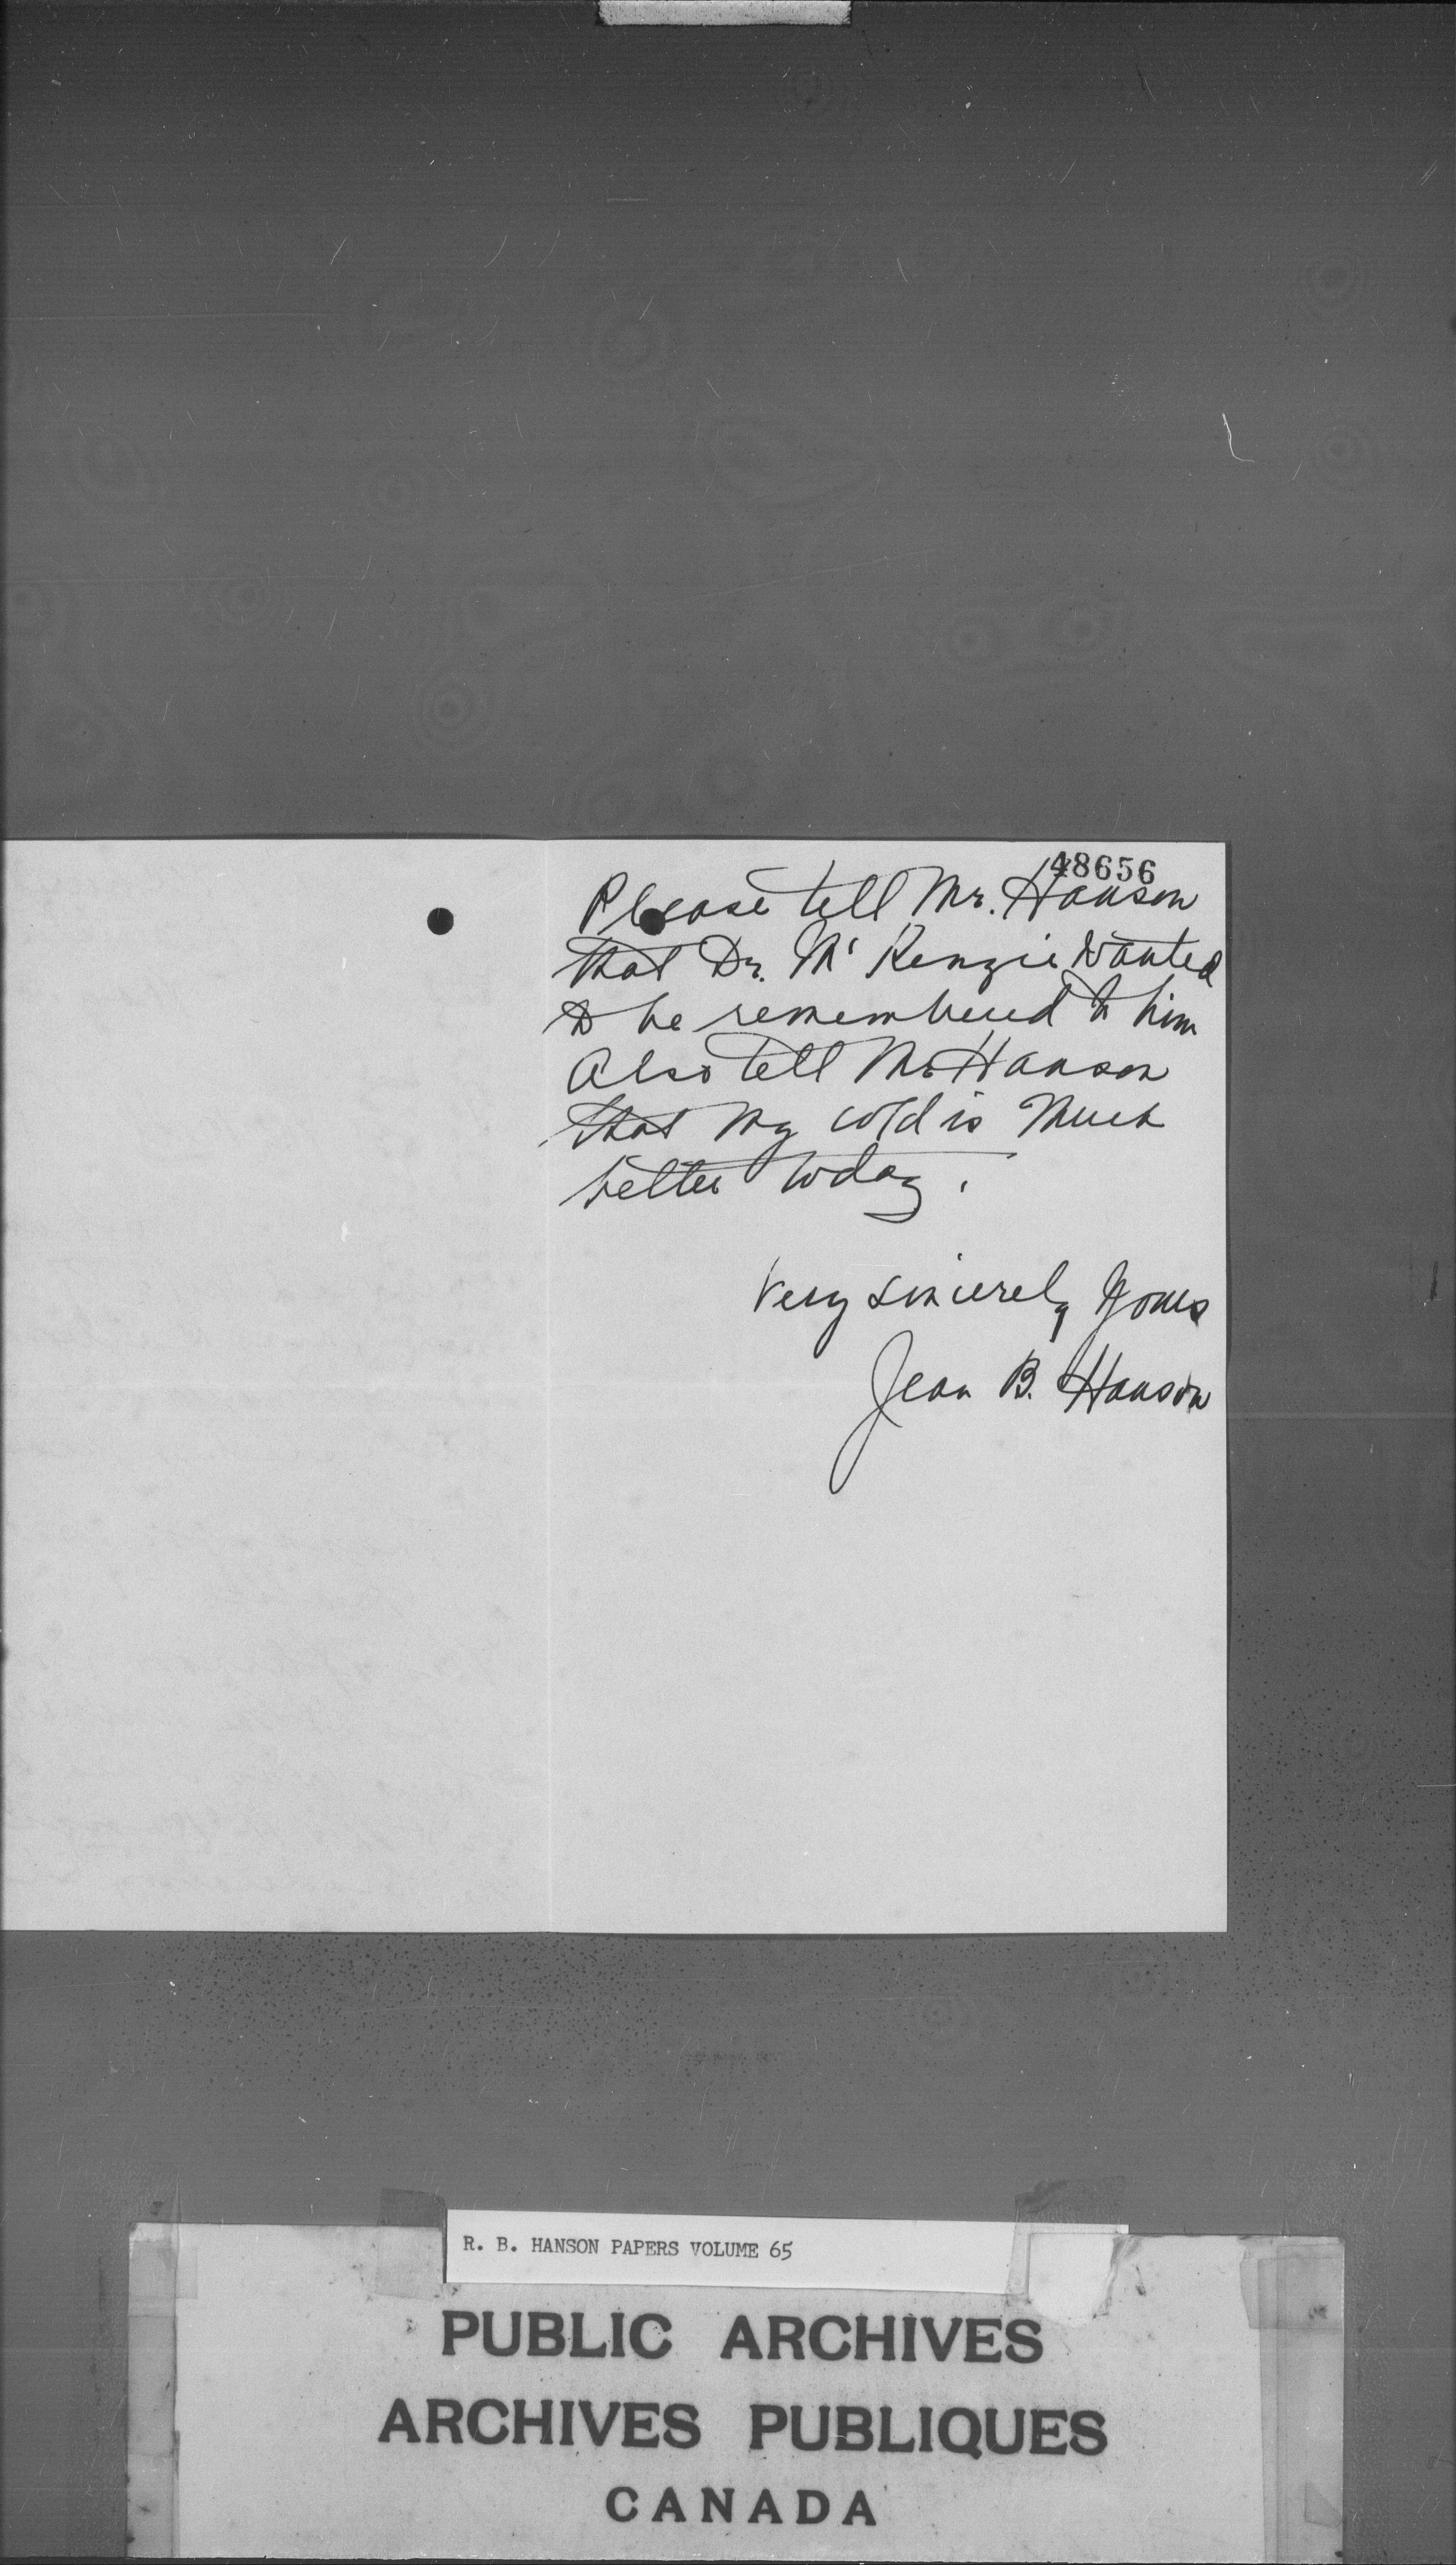 48656
Please tell Mr. Hanson
that Dr. Mc Kenzie wanted
to be remembered to him
Also tell Mr Hanson
that my cold is much
better today.
Very sincerely yours
Jean B. Hanson
R. B. HANSON PAPERS VOLUME 65
PUBLIC ARCHIVES
ARCHIVES PUBLIQUES
CANADA